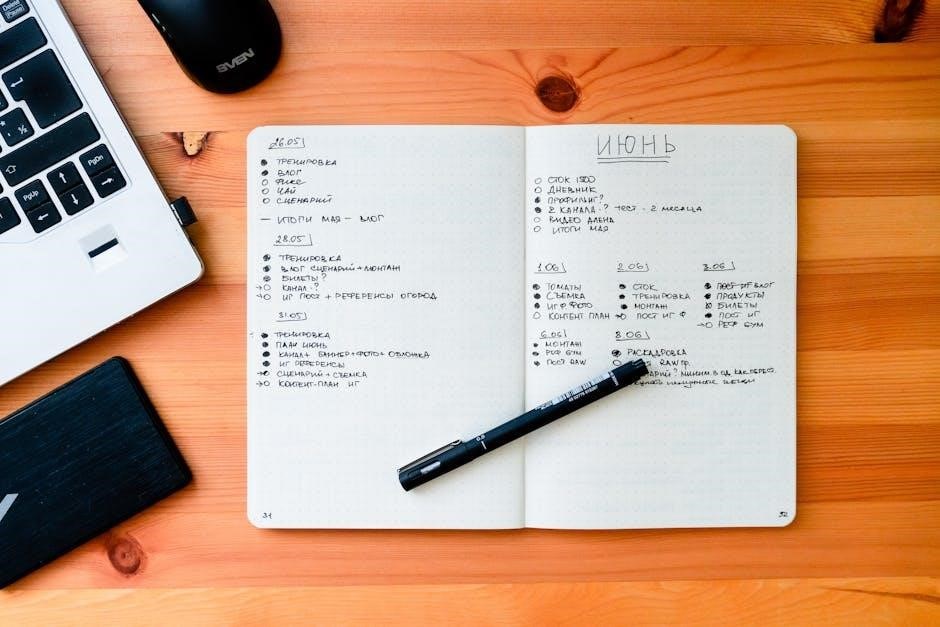 Delete
PgDn
PgUp
SVEN
26.05
ТРЕНИРОВКА
ВЛОГ
ФИКС
ЧАЙ
СЦЕНАРИЙ
— ИТОГИ МАЯ — ВЛОГ
28.05
ТРЕНИРОВКА
ВЛОГ СЦЕНАРИЙ+МОНТАЖ
БИЛЕТЫ?
КАНАЛ-?
ИГ ПОСТ + РЕФЕРЕНСЫ ОГОРОД
31.05
ТРЕНИРОВКА
ПЛАН ИЮНЬ
КАНАЛ+ БАННЕР+ФОТО+ОБЛОЖКА
ИГ РЕФЕРЕНСЫ
СЦЕНАРИЙ+СЪЕМКА
КОНТЕНТ-ПЛАН ИГ
31
ИЮНЬ
СТОК 1500
ДНЕВНИК
ПРОФИЛЬ ИГ?
2 КАНАЛА-? ТЕСТ-2 МЕСЯЦА
ВИДЕО АЛЕНА
ИТОГИ МАЯ
1.06
ТОМАТЫ
СЪЕМКА
ИГ Ф ФОТО
КОНТЕНТ ПЛАН
2.06
СТОК
ТРЕНИРОВКА
МОНТАЖ
ПОСТ ИГ Ф
3.06
ВЛОГ
ПРОДУКТЫ
БИЛЕТЫ
ПОСТ ИГ
РЕФ GYM
6.06
МОНТАЖ
РЕФ GYM
ПОСТ RAW
8.06
РАСКАДРОВКА
RAW ГР.
32
0.8